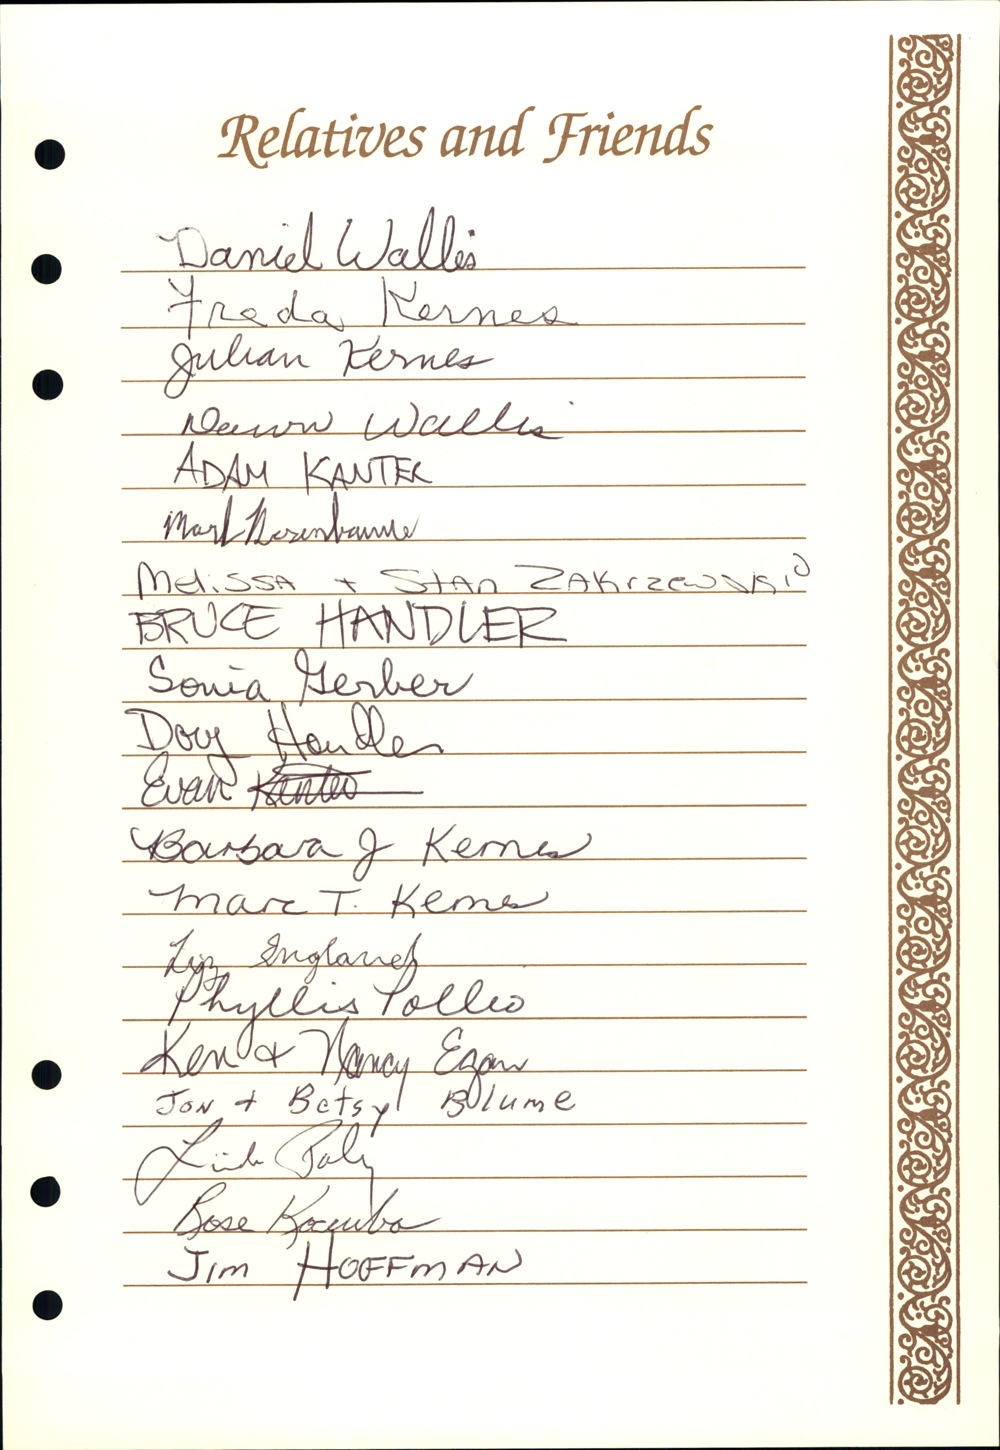 Relatives and Friends
Daniel Wallis
Freda Kernes
Julian Kernes
Dawn Wallis
ADAM KANTER
Mark Rosenbaum
Melissa + Stan Zakrzewski
BRUCE HANDLER
Sonia Gerber
Doug Handler
Evan Kanter
Barbara J Kernes
Marc T. Kernes
Liz England
Phyllis Polleo
Ken & Nancy Egan
Jon + Betsy Blume
Linda Paly
Rose
Jim HOFFMAN